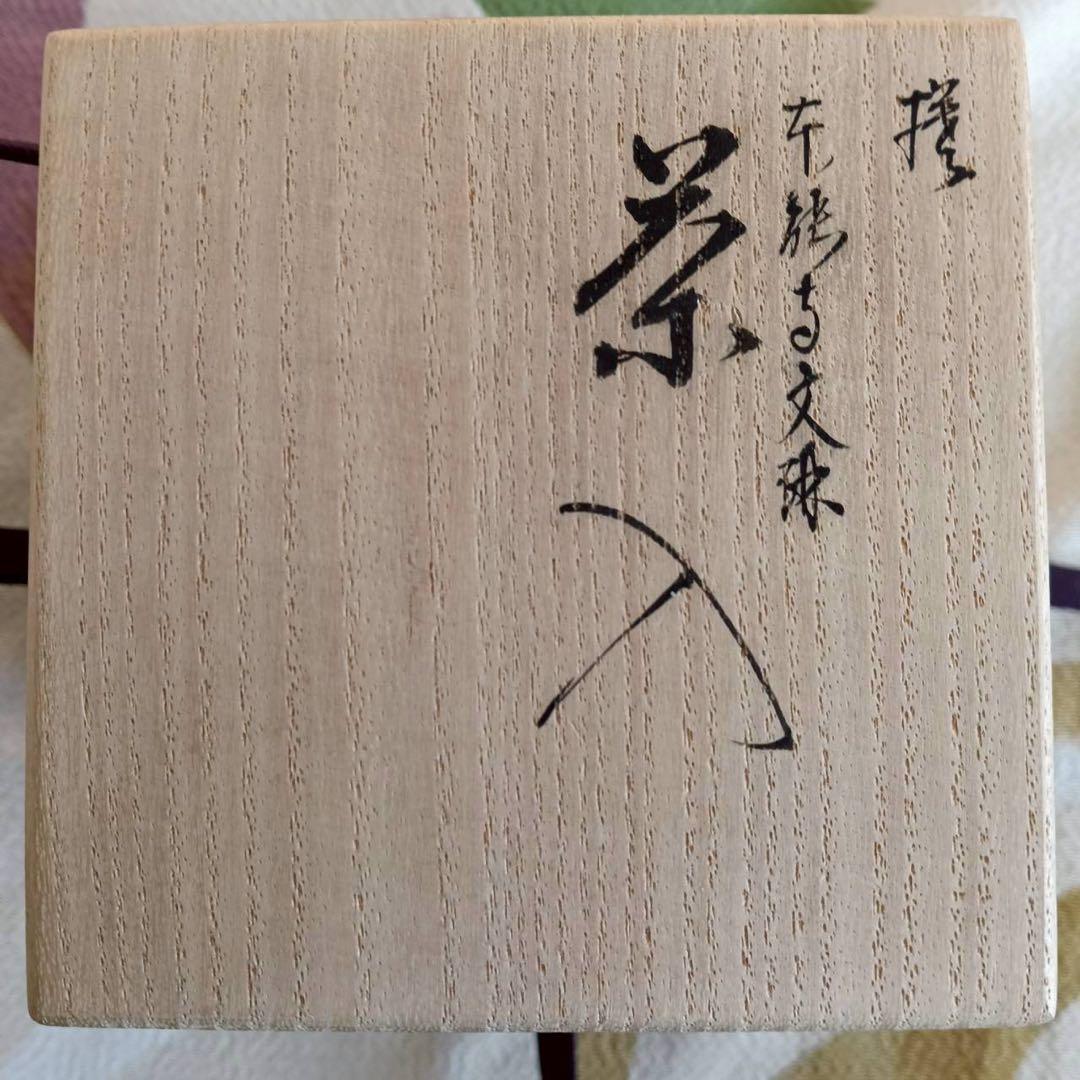 擬
本能寺文琳
茶入